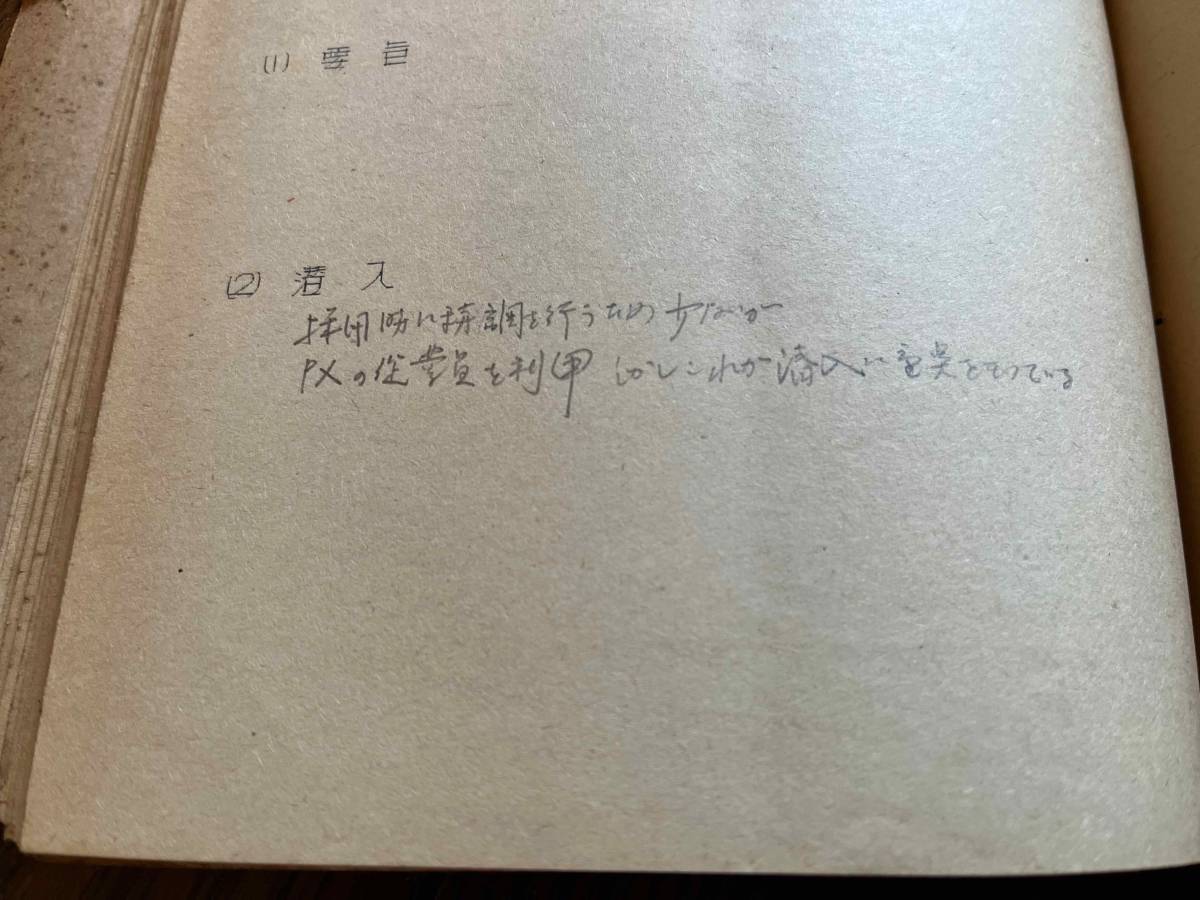 (1) 要旨
(2) 潜入
採用時に特調を行うため 少ないが
PXの従業員を利用 しかしこれが潜入に重点をもっている